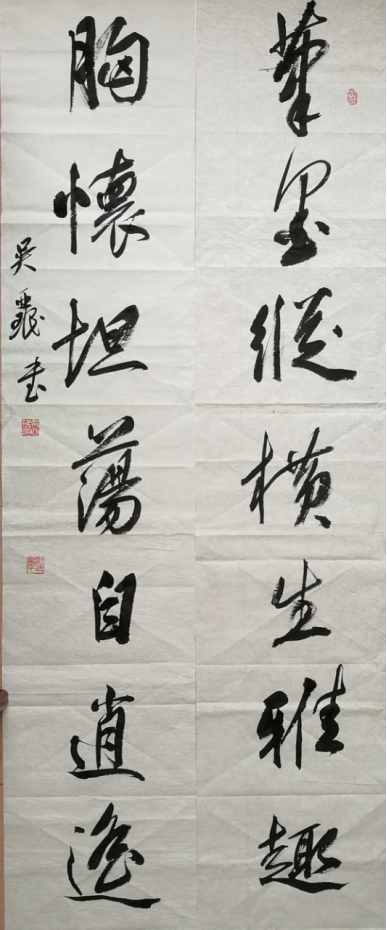 筆墨縱橫生雅趣
胸懷坦蕩自逍遙
吴 書